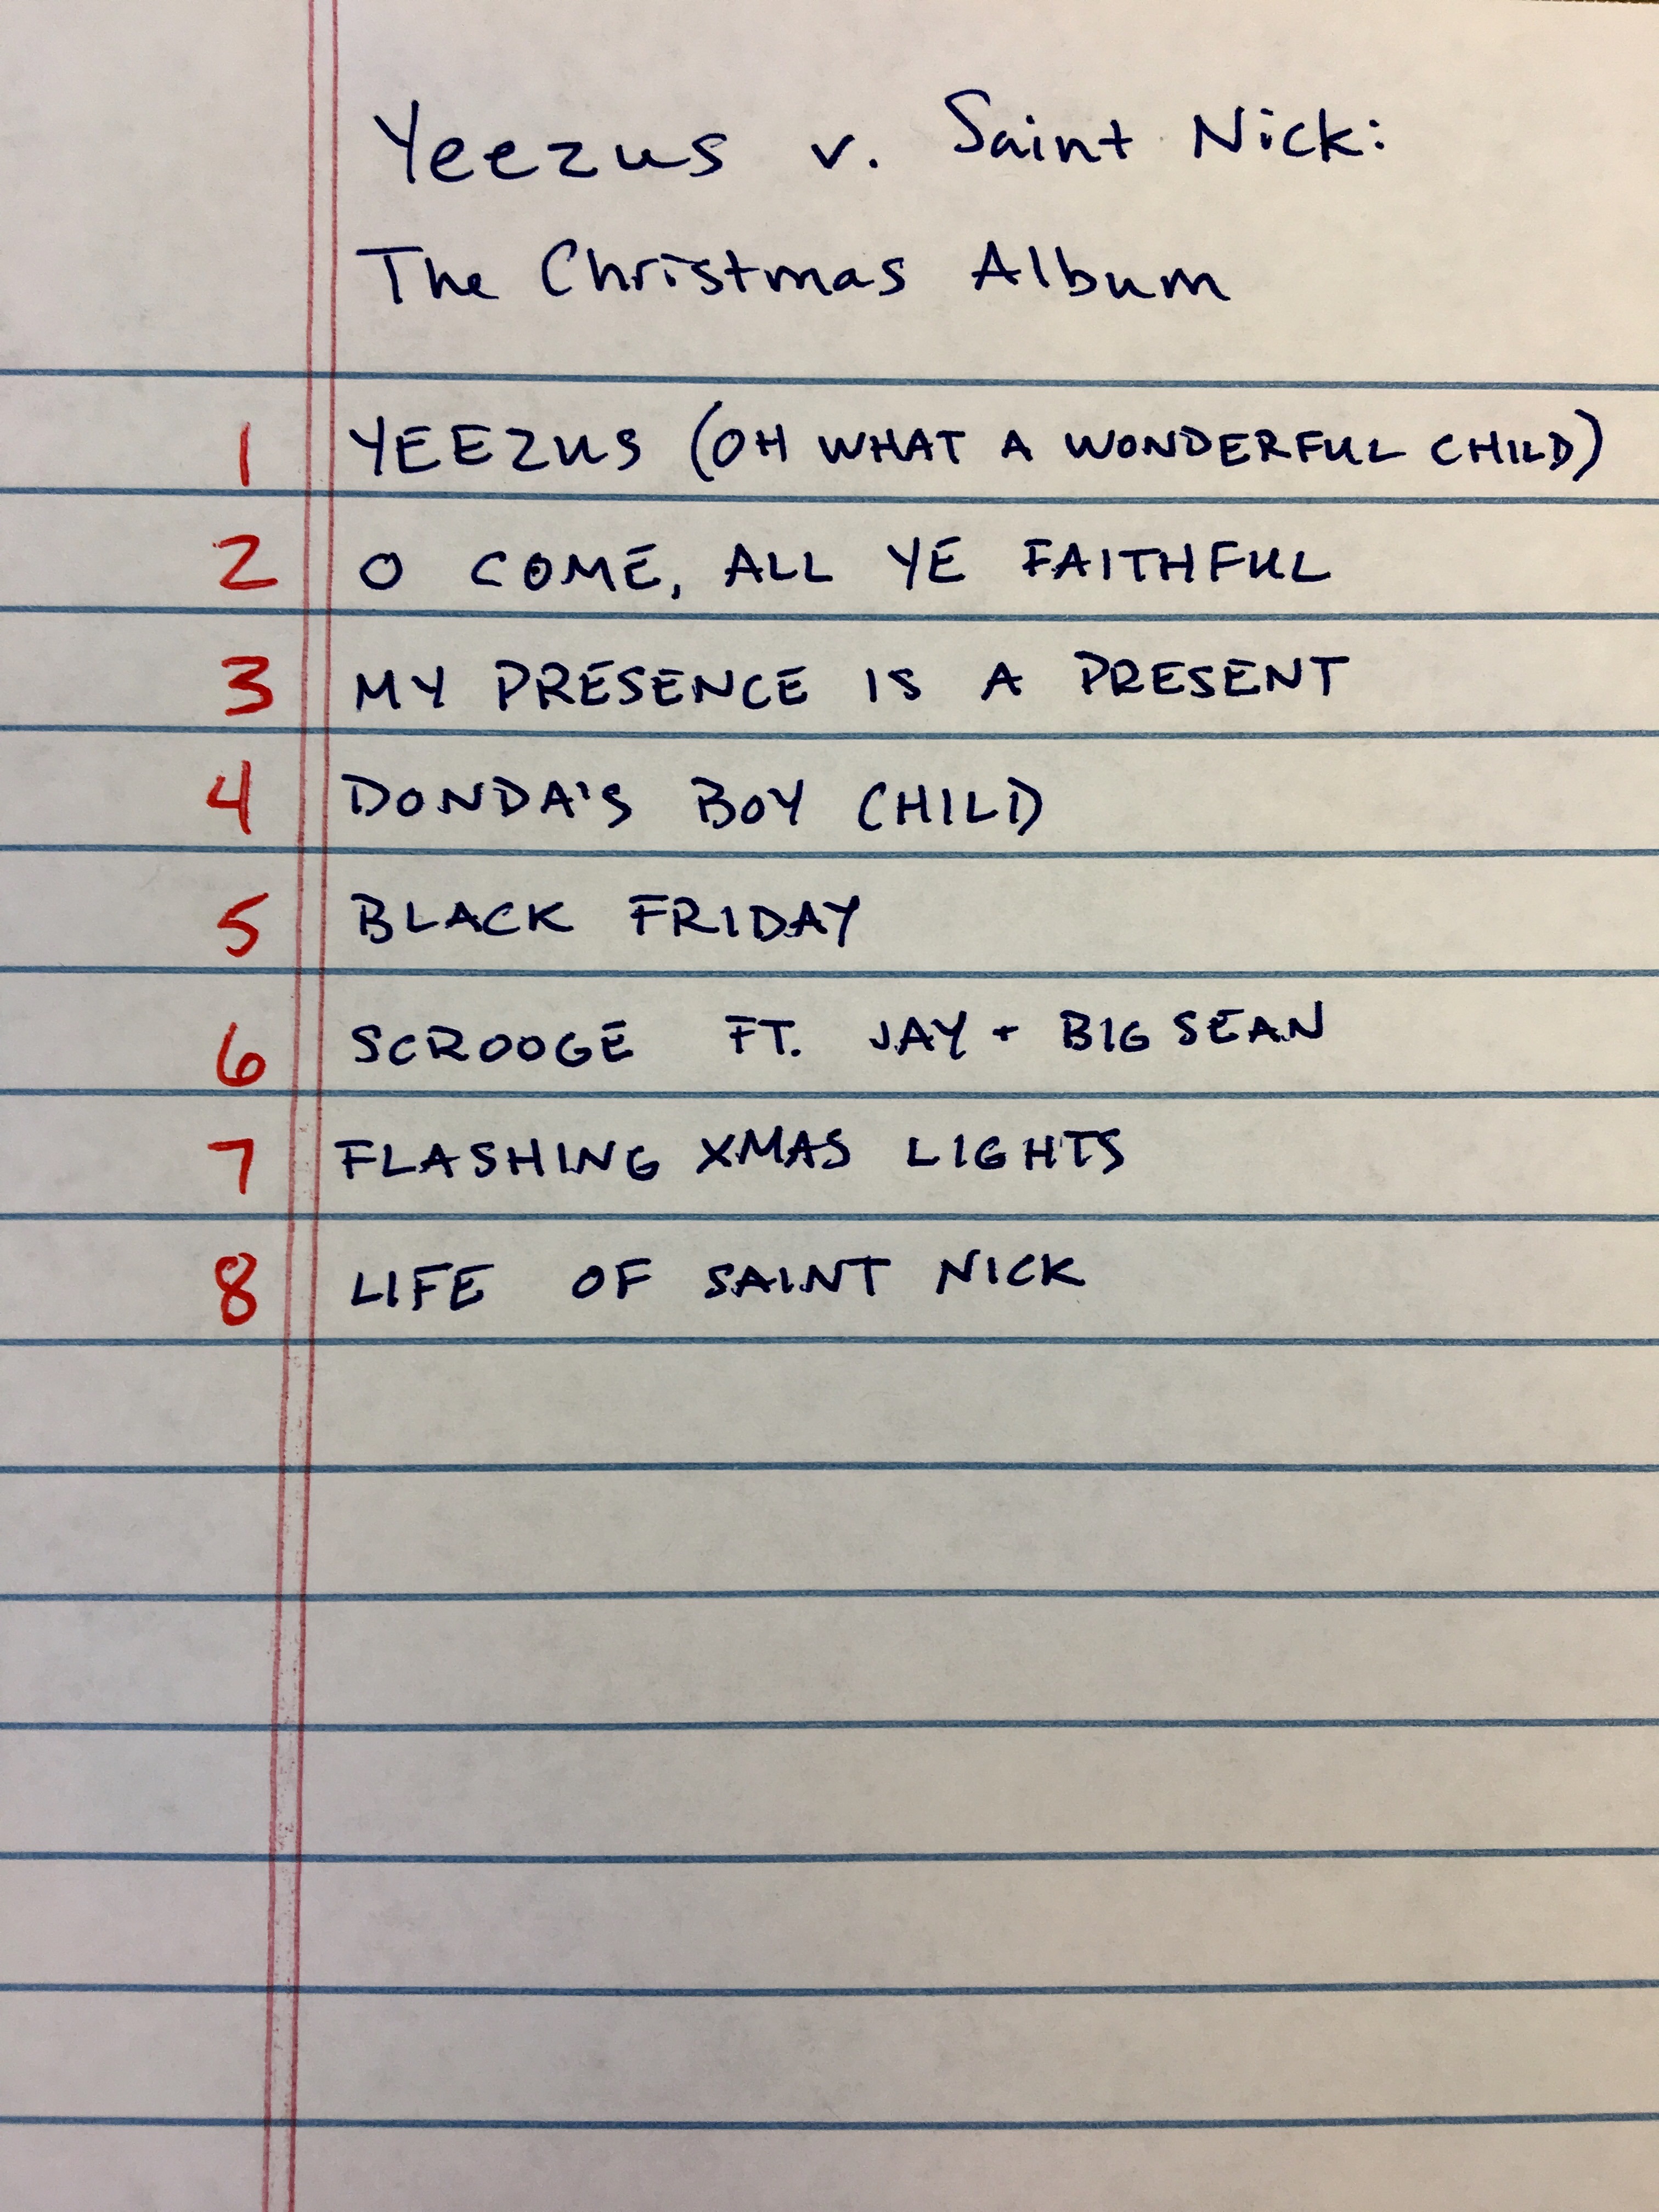 Yeezus v. Saint Nick:
The Christmas Album
1 YEEZUS (OH WHAT A WONDERFUL CHILD)
2 O COME, ALL YE FAITHFUL
3 MY PRESENCE IS A PRESENT
4 DONDA'S BOY CHILD
5 BLACK FRIDAY
6 SCROOGE FT. JAY + BIG SEAN
7 FLASHING XMAS LIGHTS
8 LIFE OF SAINT NICK